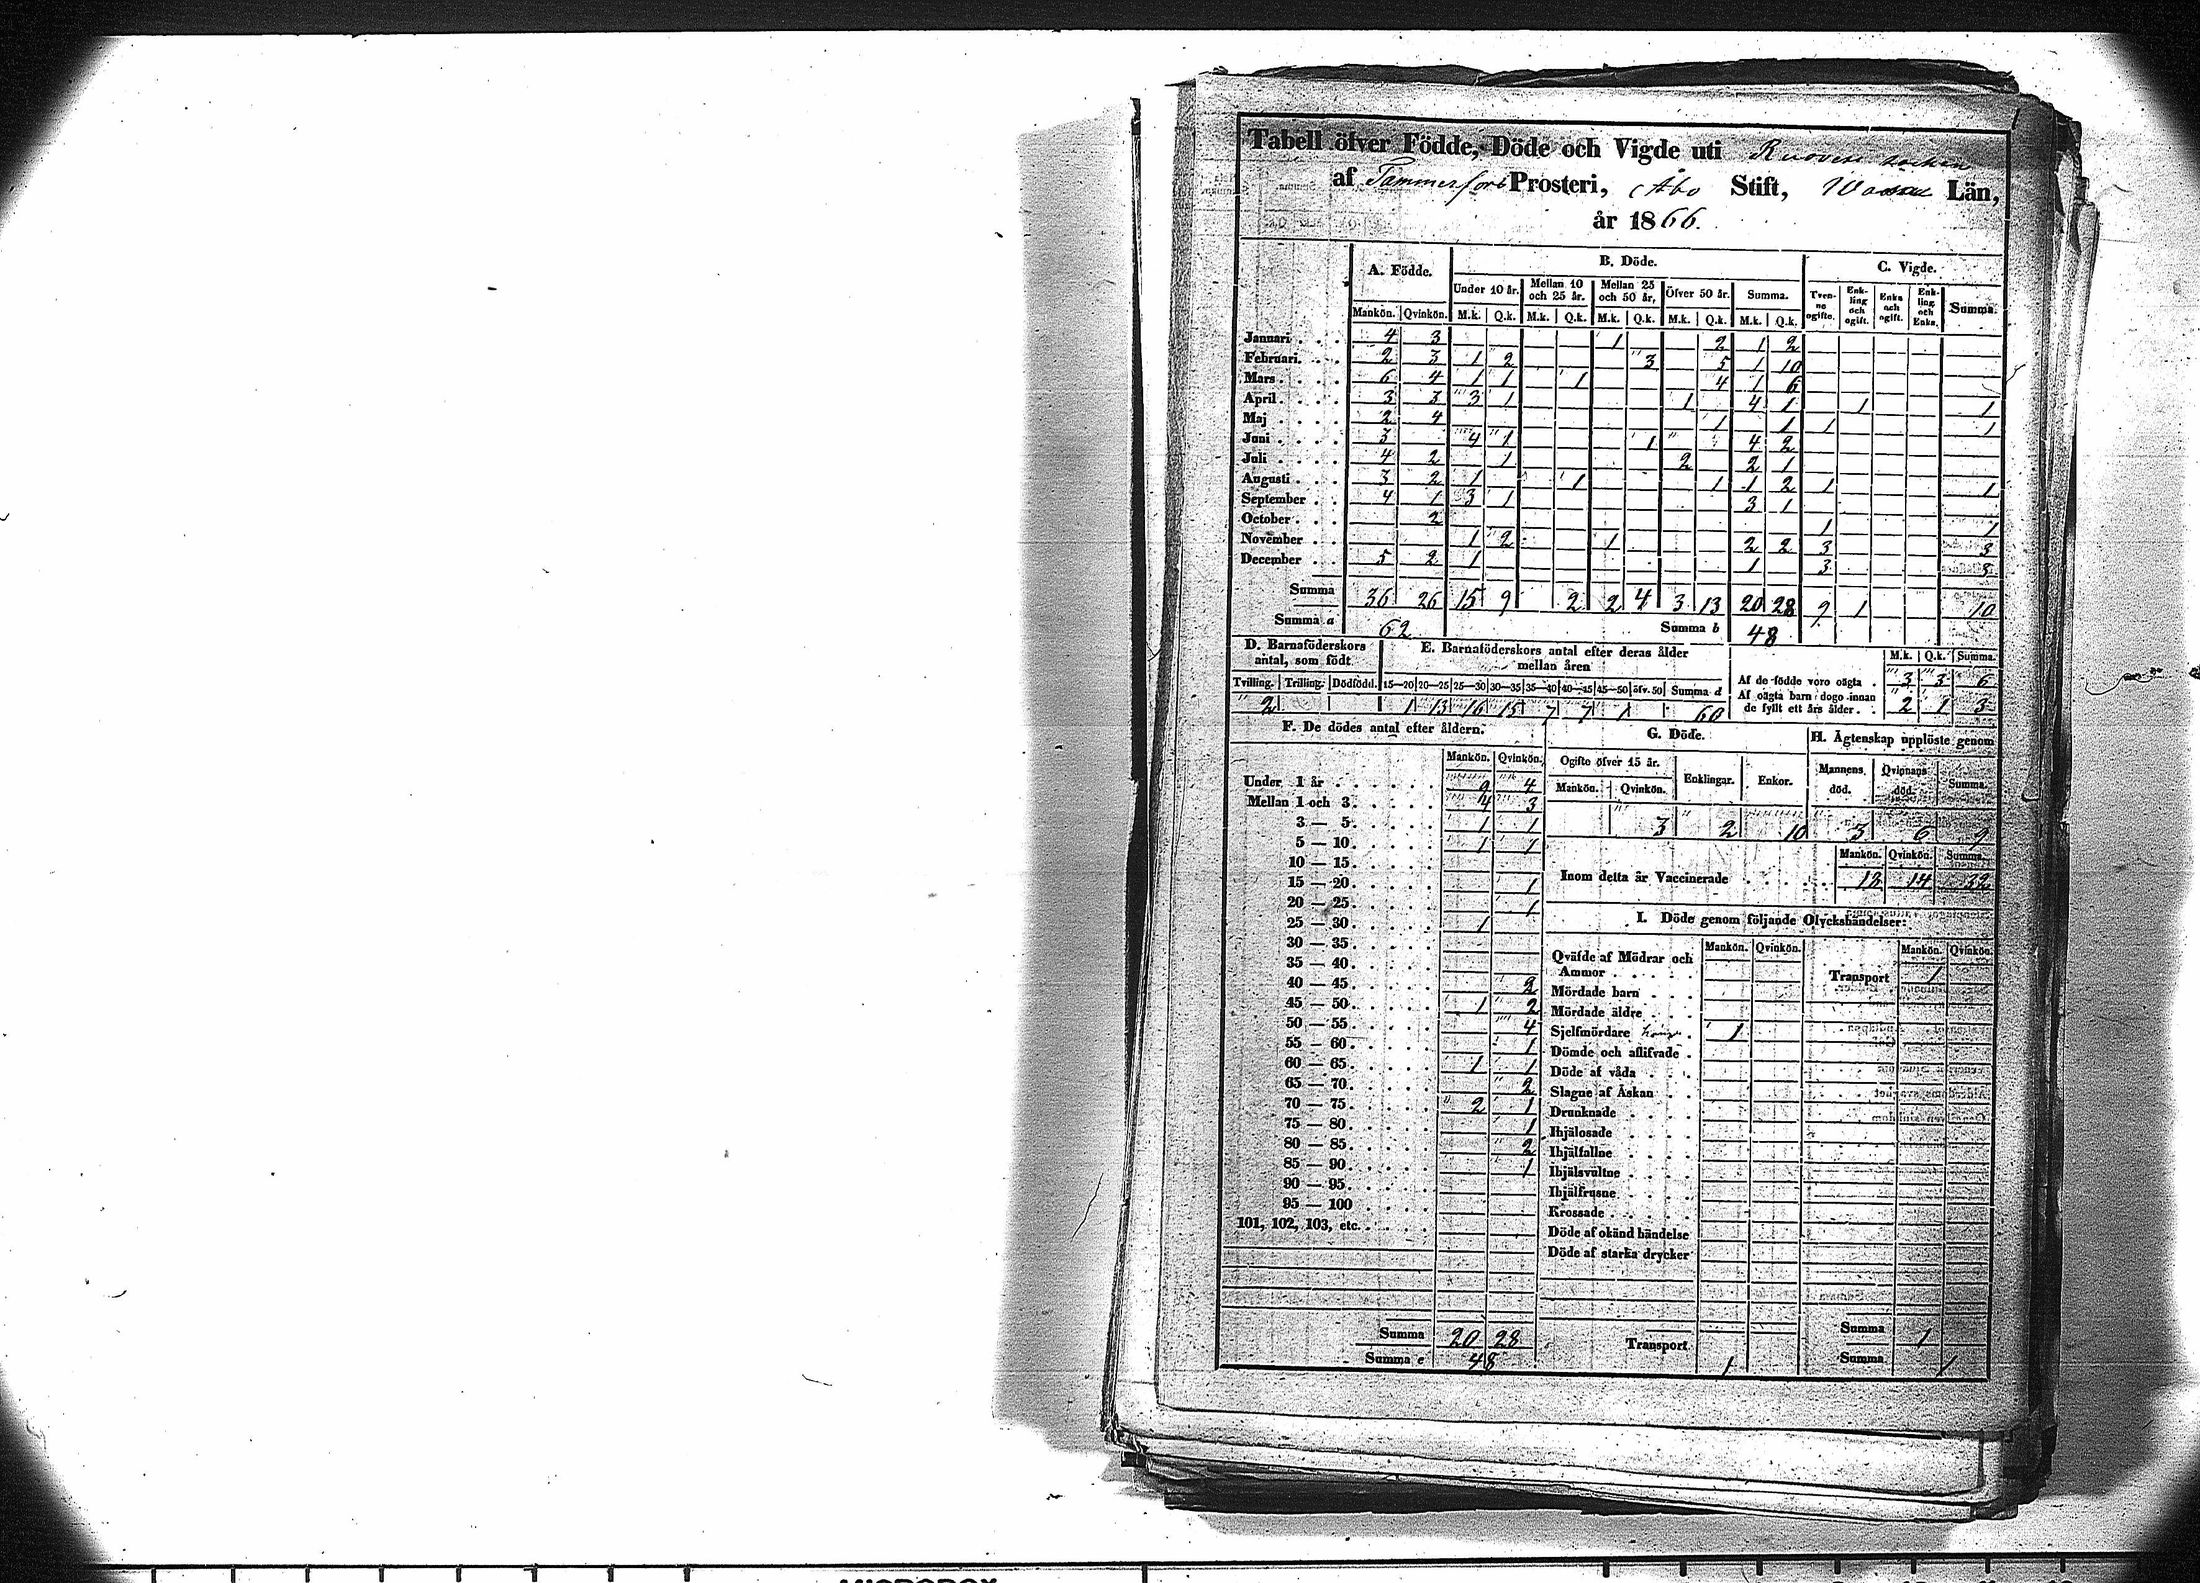 Tabell öfver Födde, Döde och Vigde uti Ruovesi socken
af Tammerfors Prosteri, Åbo Stift, Wasa Län,
år 1866.
A. Födde. B. Döde. C. Vigde.
Under 10 år. Mellan 10 och 25 år. Mellan 25 och 50 år, Öfver 50 år. Summa. Tvenne ogifte. Enkling och ogift. Enka och ogift. Enkling och Enka. Summa.
Mankön. Qvinkön. M.k. Q.k. M.k. Q.k. M.k. Q.k. M.k. Q.k. M.k. Q.k.
Januari 4 3 1 2 1 2
Februari 2 3 1 2 3 5 1 10
Mars 6 4 1 1 1 4 1 6
April 3 3 3 1 1 4 1 1 1
Maj 2 4 1 1 1 1
Juni 3 4 1 1 4 2
Juli 4 2 1 2 2 1
Augusti 3 2 1 1 1 1 2 1 1
September 4 1 3 1 3 1
October 2 1 1
November 1 2 1 2 2 3 3
December 5 2 1 1 3 3
Summa 36 26 15 9 2 2 4 3 13 20 28 9 1 10
Summa a 62 Summa b 48
D. Barnaföderskors antal, som födt
Tvilling. Trilling. Dödfödd.
2
E. Barnaföderskors antal efter deras ålder
mellan åren
15—20 20—25 25—30 30—35 35—40 40—45 45—50 öfv. 50 Summa d
1 13 16 15 7 7 1 60
M.k. Q.k. Summa.
Af de födde voro oägta 3 3 6
Af oägta barn dogo innan
de fyllt ett års ålder 2 1 3
F. De dödes antal efter åldern.
Mankön. Qvinkön.
Under 1 år 9 4
Mellan 1 och 3 4 3
3 — 5 1 1
5 — 10 1 1
10 — 15
15 — 20 1
20 — 25 1
25 — 30 1
30 — 35
35 — 40
40 — 45 2
45 — 50 1 2
50 — 55 4
55 — 60 1
60 — 65 1 1
65 — 70 2
70 — 75 2 1
75 — 80 1
80 — 85 2
85 — 90 1
90 — 95
95 — 100
101, 102, 103, etc.
Summa 20 28
Summa e 48
G. Döde.
Ogifte öfver 15 år. Enklingar. Enkor.
Mankön. Qvinkön.
3 2 10
H. Ägtenskap upplöste genom
Mannens död. Qvinnans död. Summa.
3 6 9
Mankön. Qvinkön. Summa.
Inom detta år Vaccinerade 13 14 32
I. Döde genom följande Olyckshändelser:
Mankön. Qvinkön. Mankön. Qvinkön.
Qväfde af Mödrar och
Ammor Transport 1
Mördade barn
Mördade äldre
Sjelfmördare 1
Dömde och aflifvade
Döde af våda
Slagne af Åskan
Drunknade
Ihjälosade
Ihjälfallne
Ihjälsvultne
Ihjälfrusne
Krossade
Döde af okänd händelse
Döde af starka drycker
Transport 1
Summa 1
Summa 1